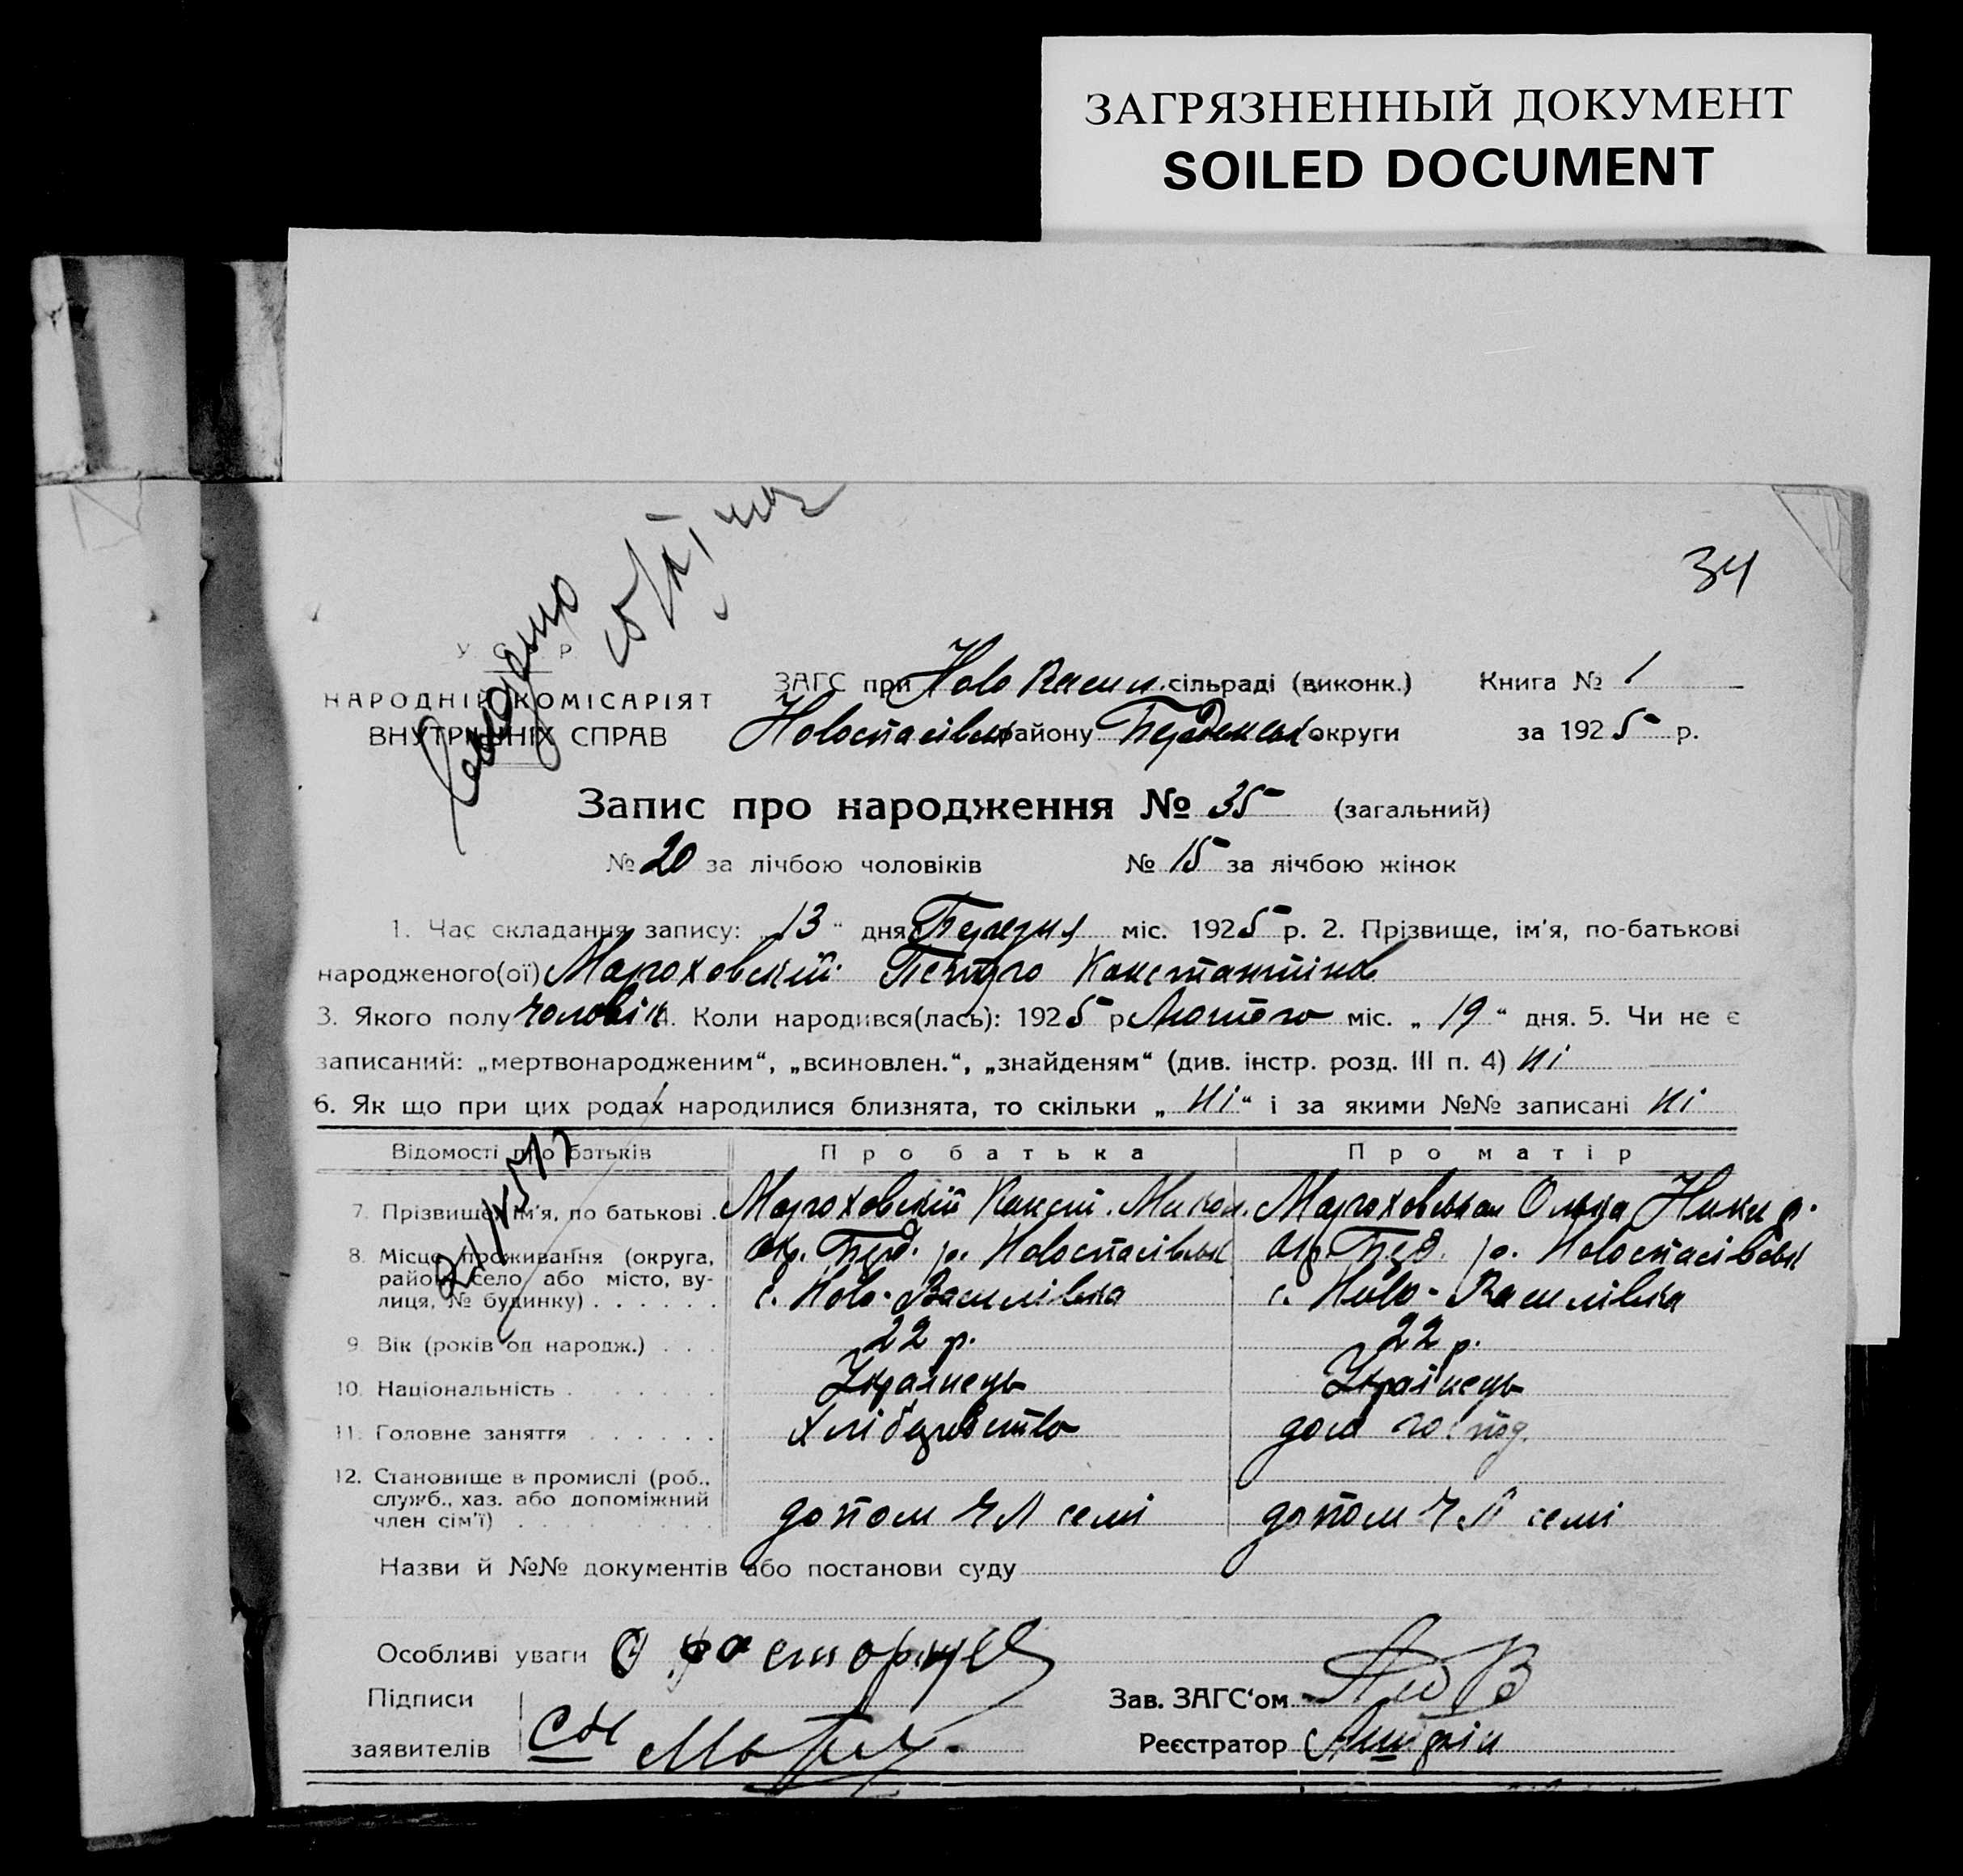 ЗАГРЯЗНЕННЫЙ ДОКУМЕНТ
SOILED DOCUMENT
34
У С Р Р
НАРОДНІЙ КОМІСАРІЯТ
ВНУТРІШНІХ СПРАВ
ЗАГС при Ново Васил. сільраді (виконк.) Книга № 1
Новоспасівськ району Бердянськ округи за 1925 р.
Запис про народження № 35 (загальний)
№ 20 за лічбою чоловіків № 15 за лічбою жінок
1. Час складання запису: „13“ дня Березня міс. 1925 р. 2. Прізвище, ім'я, по-батькові
народженого(ої) Мароховский Петро Константінов
3. Якого полу чоловік 4. Коли народився(лась): 1925 р Лютого міс. „19“ дня. 5. Чи не є
записаний: „мертвонародженим“, „всиновлен.“, „знайденям“ (див. інстр. розд. III п. 4) ні
6. Як що при цих родах народилися близнята, то скільки „ні“ і за якими №№ записані ні
Відомості про батьків Про батька Про матір
7. Прізвище, ім'я, по батькові . Мароховский Конст. Микол. Мароховськая Ольга Ники р.
8. Місце проживання (округа, район, село або місто, вулиця, № будинку) . . . . . . Окр. Берд. р. Новоспасівськ с. Ново-Василівка Окр. Берд. р. Новоспасівськ с. Ново-Василівка
9. Вік (років од народж.) . . . 22 р. 22 р.
10. Національність . . . . . . . Українець Українець
11. Головне заняття . . . . . . хліборобство дом господ.
12. Становище в промислі (роб., служб., хаз. або допоміжний член сім'ї) . . . . . . . . . допом чл семі допом чл семі
Назви й №№ документів або постанови суду
Особливі уваги
Підписи
заявителів
Зав. ЗАГС'ом
Реєстратор